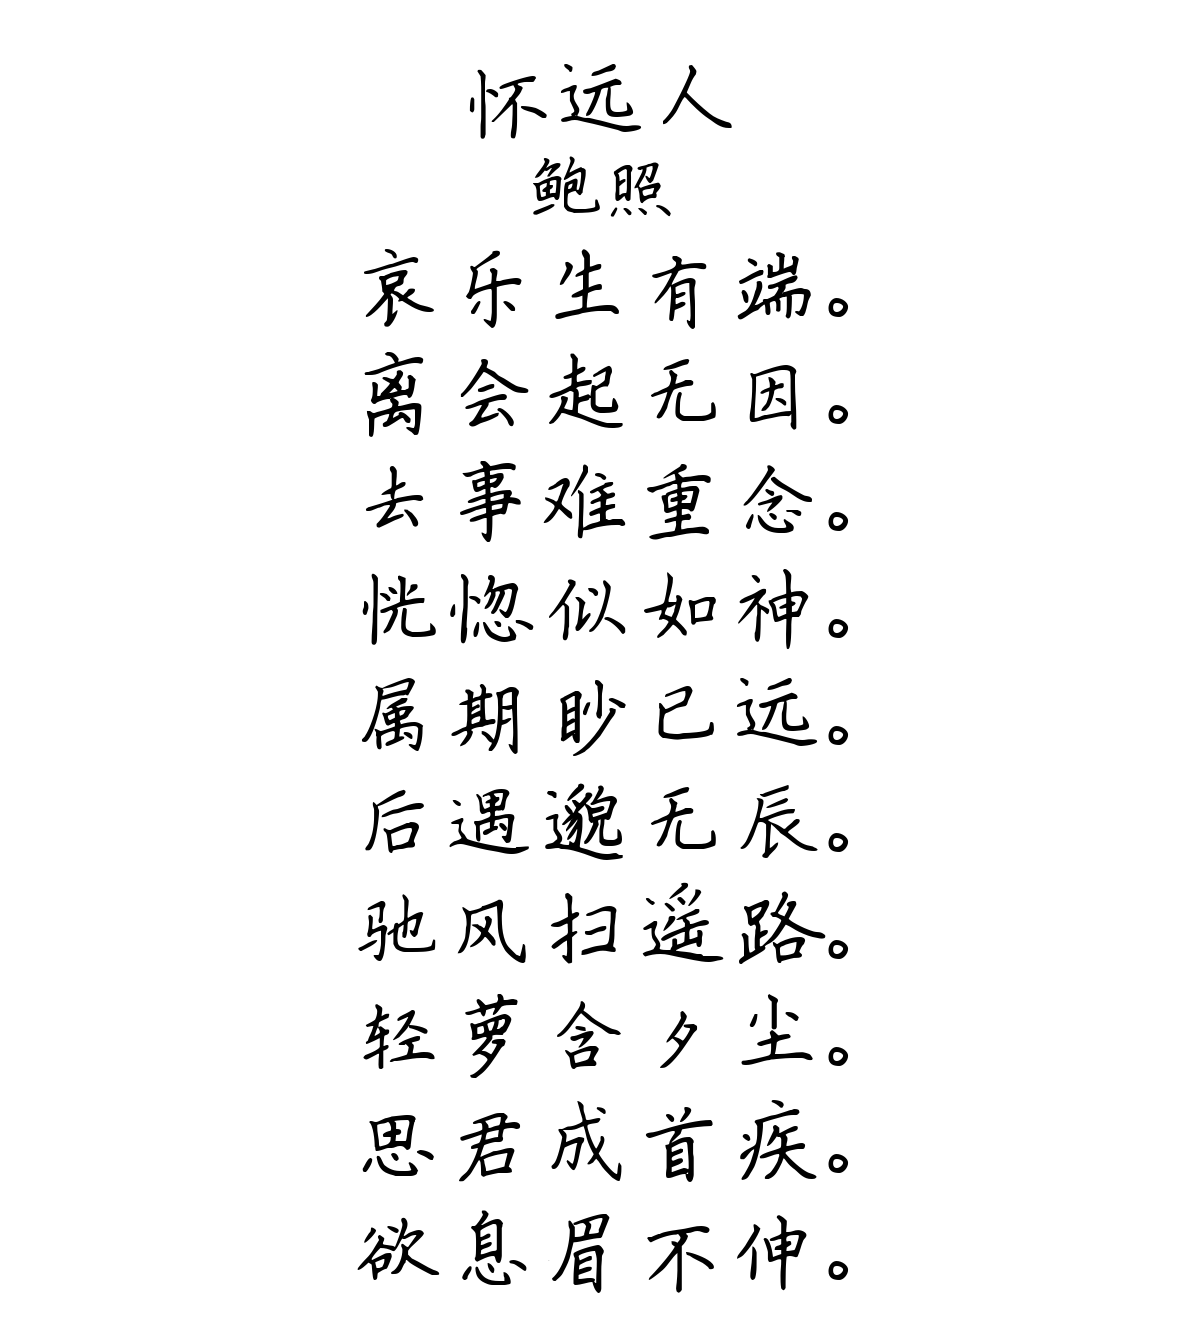 怀远人
鲍照
哀乐生有端。
离会起无因。
去事难重念。
恍惚似如神。
属期眇已远。
后遇邈无辰。
驰风扫遥路。
轻萝含夕尘。
思君成首疾。
欲息眉不伸。